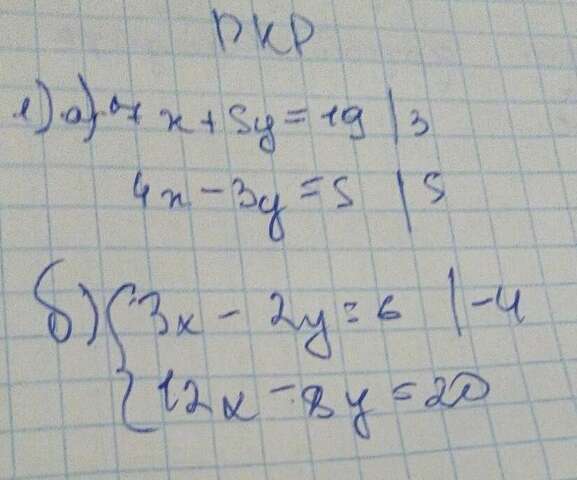 ПКР
1) а) x + 5y = 19 | 3
4x - 3y = 5 | 5
б) { 3x - 2y = 6 | -4
12x - 8y = 20